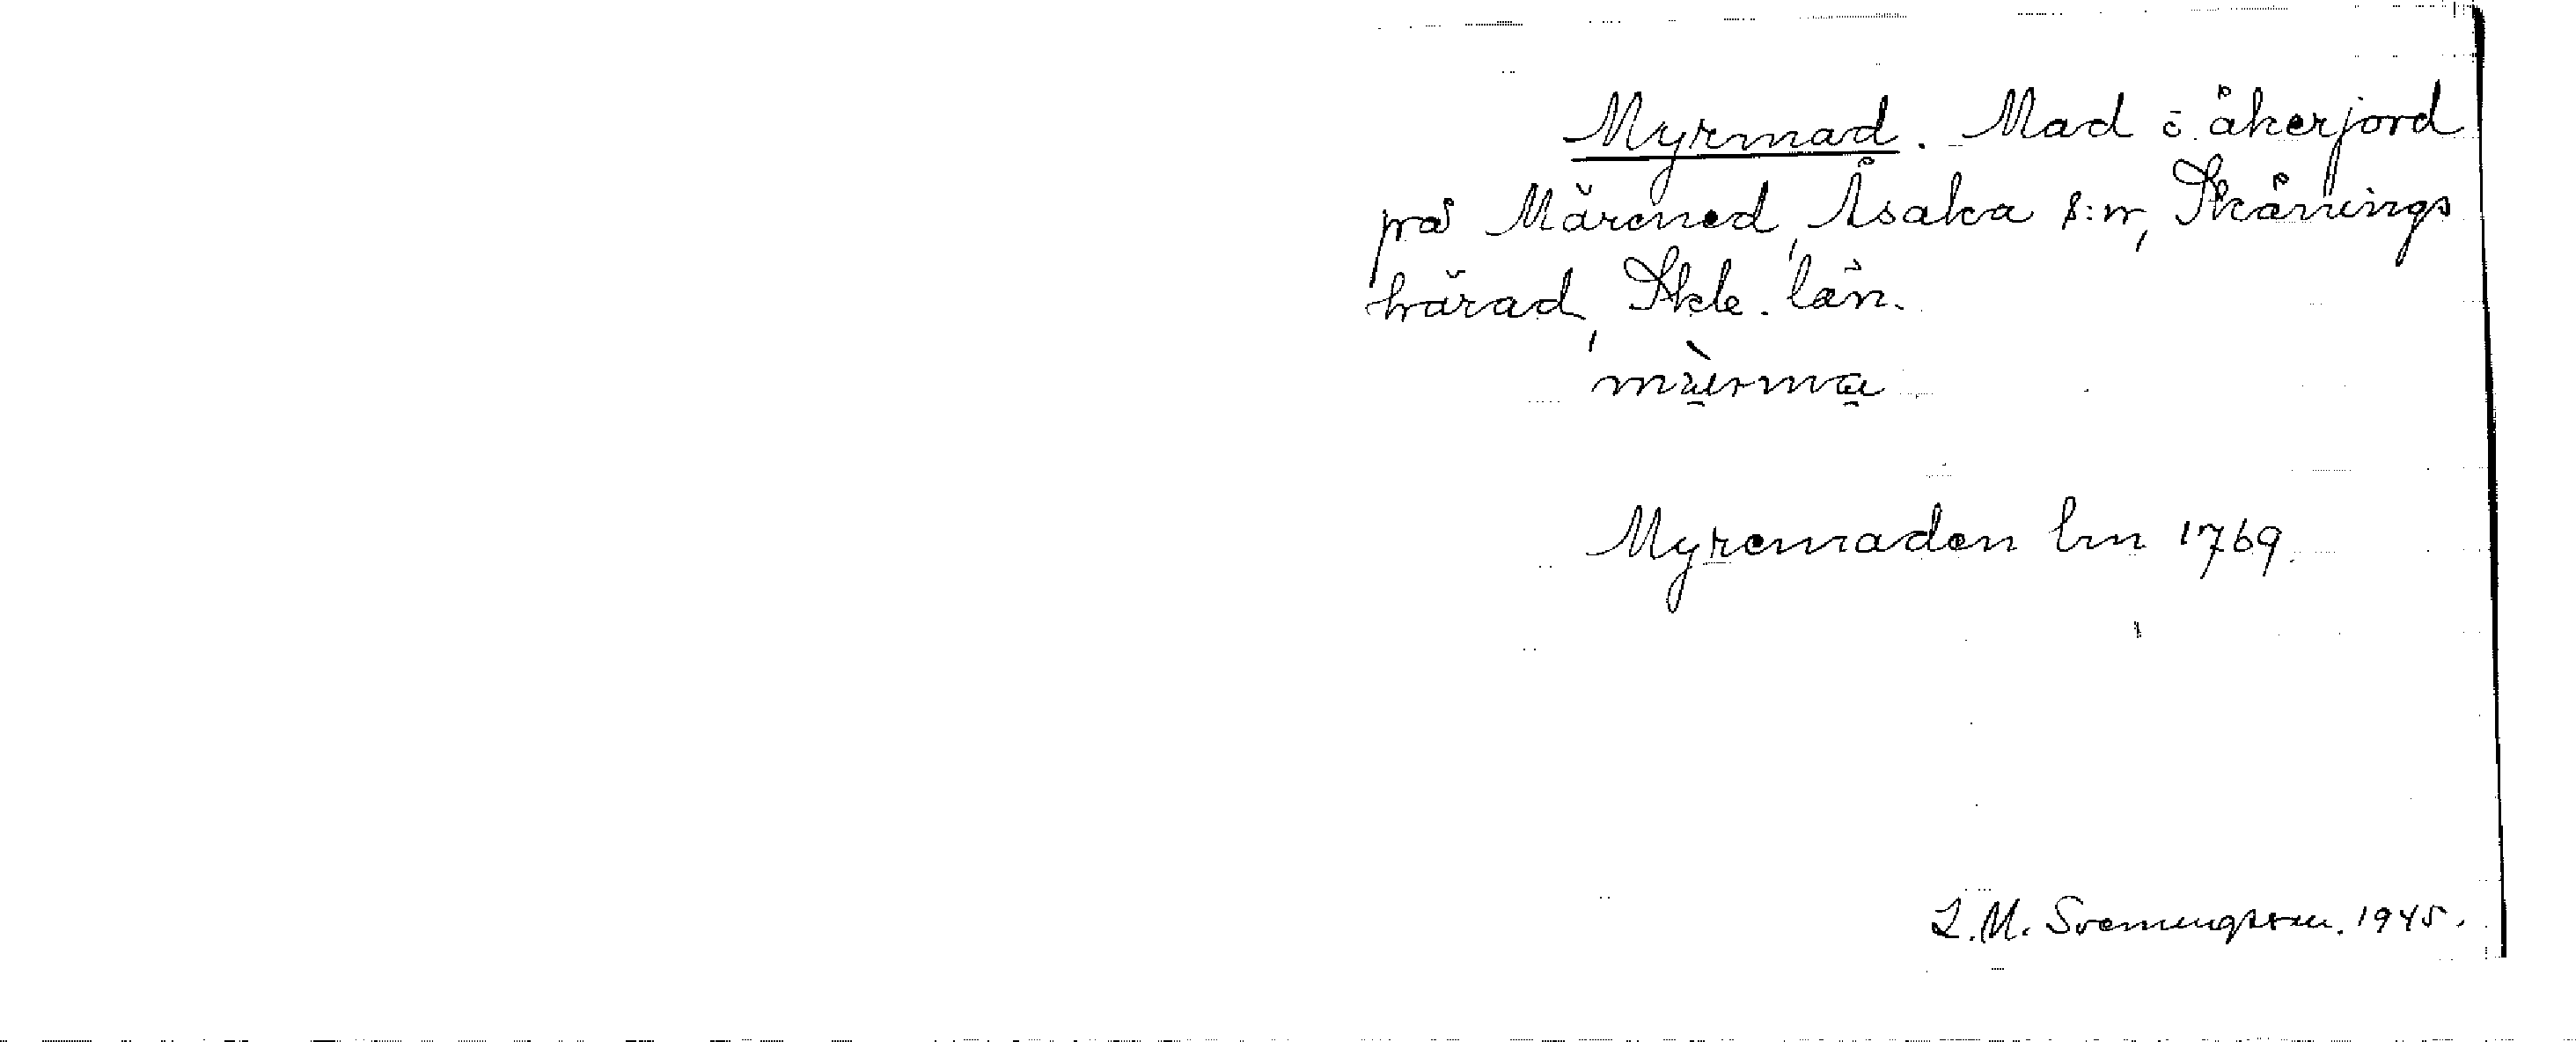 Myrmad. Mad o. åkerjord
på Märened, Åsaka s:n, Skånings
härad, Skbg. län.
mùrma
Myremaden Lm 1769.
L.M. Svenungsson. 1945.